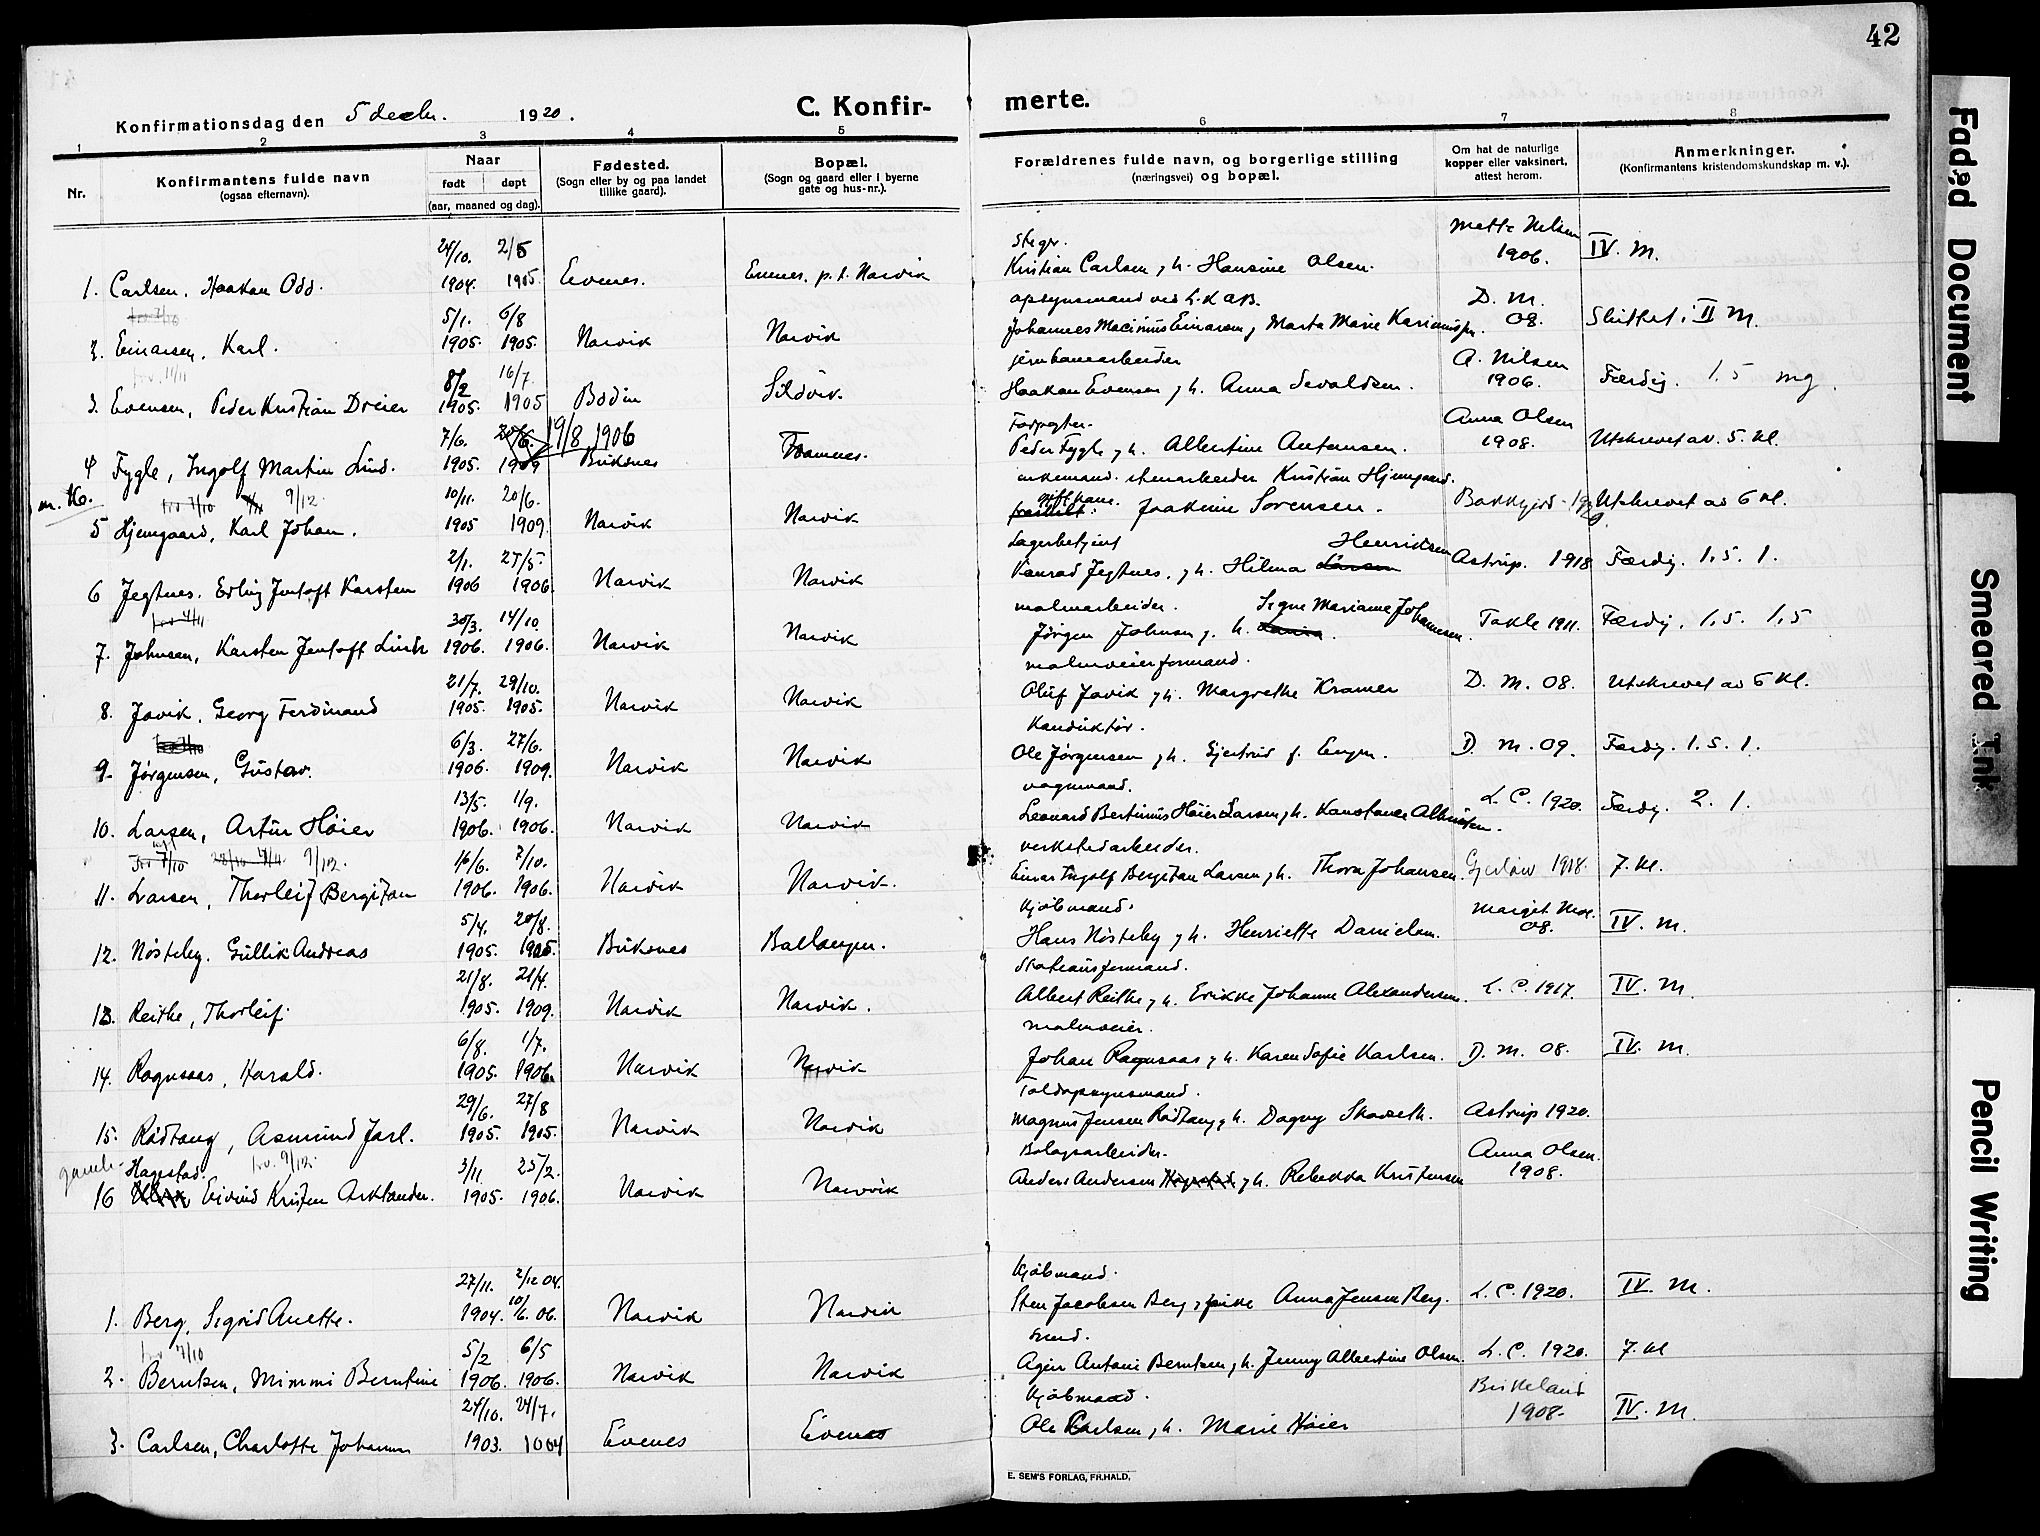 42
Konfirmationsdag den 5 decbr. 1920.
C. Konfirmerte.
1 2 3 4 5 6 7 8
Nr.
Konfirmantens fulde navn
(ogsaa efternavn).
Naar
født døpt
(aar, maaned og dag).
Fødested.
(Sogn eller by og paa landet
tillike gaard).
Bopæl.
(Sogn og gaard eller i byerne
gate og hus-nr.).
Forældrenes fulde navn, og borgerlige stilling
(næringsvei) og bopæl.
Om hat de naturlige
kopper eller vaksinert,
attest herom.
Anmerkninger.
(Konfirmantens kristendomskundskap m. v.).
24/10. 2/5 Mette Nilsen
1. Carlsen, Haakon Odd. 1904. 1905 Evenes. Evenes. p. t. Narvik Kristian Carlsen, h. Hansine Olsen. 1906. IV. M.
5/1. 6/8 opsynsmand ved L.K.A.B. D. M.
2. Einarsen, Karl. 1905. 1905. Narvik Narvik 08. Sluttet i II M.
8/2 16/7. jernbanearbeider A. Nilsen
3. Evensen, Peder Kristian Dreier 1905. 1905 Bodin Sildvik. Haakon Evensen, h. Anna Sevaldsen. 1906. Færdig. 1.5 mg.
7/6. 19/8 1906 Forpagter. Anna Olsen
4 Fygle, Ingolf Martin Lind. 1905. 1909 Buksnes Framnes. Peder Fygle, h. Albertine Antonsen. 1908. Utskrevet av 5. kl.
10/11. 20/6. enkemand. stenarbeider Kristian Hjemgaard.
5 Hjemgaard, Karl Johan. 1905 1909. Narvik Narvik Joakime Sørensen. Utskrevet av 6 kl.
2/1. 27/5. Lagerbetjent Henriksen
6 Jegtnes. Erling Jentoft Karsten 1906 1906. Narvik Narvik Konrad Jegtnes, h. Hilma Larsen Astrup. 1918 Færdig. 1,5. 1.
30/3. 14/10. malmarbeider. Signe Marianne Johannesen
7. Johnsen, Karsten Jentoft Linds 1906. 1906. Narvik Narvik Jørgen Johnsen, h. Takle 1911. Færdig. 1,5. 1,5
21/7. 29/10. malmveierformand.
8. Javik, Georg Ferdinand 1905. 1905. Narvik Narvik Oluf Javik, h. Margrethe Kramer D. M. 08. Utskrevet av 6 kl.
6/3. 27/6. Konduktør.
9. Jørgensen, Gustav. 1906. 1909. Narvik Narvik Ole Jørgensen, h. Gjertrud f. Engen. D. M. 09. Færdig. 1.5. 1.
13/5. 1/9. vognmand.
10. Larsen, Artur Høier 1906. 1906. Narvik Narvik Leonard Bertinius Høier Larsen, h. Konstance Albertsen. L. C. 1920. Færdig. 2. 1.
16/6. 7/10. verkstedarbeider.
11. Larsen, Thorleif Bergiton 1906. 1906. Narvik Narvik. Einar Ingolf Bergiton Larsen, h. Thora Johansen. Gjerløw 1918. 7. kl.
5/4. 20/8. Kjøbmand. Margit Moe.
12. Nøsteby, Gullik Andreas 1905. 1905. Buksnes Ballangen. Hans Nøsteby, h. Henriette Danielsen. 08. IV. M.
21/8. 21/4. Stationsformand.
13. Reithe, Thorleif 1905. 1909. Narvik Narvik. Albert Reithe, h. Erikke Johanne Alexandersen. L. C. 1917. IV. M.
6/8. 1/7. malmveier.
14. Rognsaas, Harald. 1905. 1906. Narvik Narvik Johan Rognsaas, h. Karen Sofie Karlsen. D. M. 08. IV. M.
29/6. 27/8 Toldopsynsmand.
15. Rødtang, Asmund Jarl. 1905. 1905. Narvik Narvik Magnus Jensen Rødtang, h. Dagny Skarseth. Astrup 1920.
Hagestad. 3/11 25/2. Bolagsarbeider. Anna Olsen.
16 Eivind Kristen Arktander. 1905. 1906. Narvik Narvik Anders Andersen Hagestad, h. Rebekka Kristensen 1908.
27/11. 2/12 04. Kjøbmand.
1. Berg, Sigrid Anette. 1904. 10/6. 06. Narvik Narvik Sten Jacobsen Berg, frue Anna Jensen Berg. L. C. 1920. IV. M.
5/2 6/5 Smed.
2. Berntsen, Mimmi Berntine 1906. 1906. Narvik Narvik Antoni Berntsen, h. Jenny Albertine Olsen. L. C. 1920. 7. kl
24/10. 24/7. Kjøbmand. Birkeland
3. Carlsen, Charlotte Johanne 1903. 1904 Evenes Evenes Ole Carlsen, h. Marie Høier 1908. IV. M.
E. SEM'S FORLAG, FR.HALD.
Faded Document
Smeared Ink
Pencil Writing